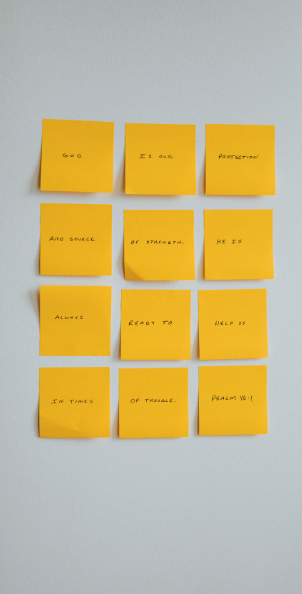 GOD IS OUR PROTECTION
AND SOURCE OF STRENGTH.
HE IS
ALWAYS READY TO HELP US
IN TIMES OF TROUBLE.
PSALM 46:1